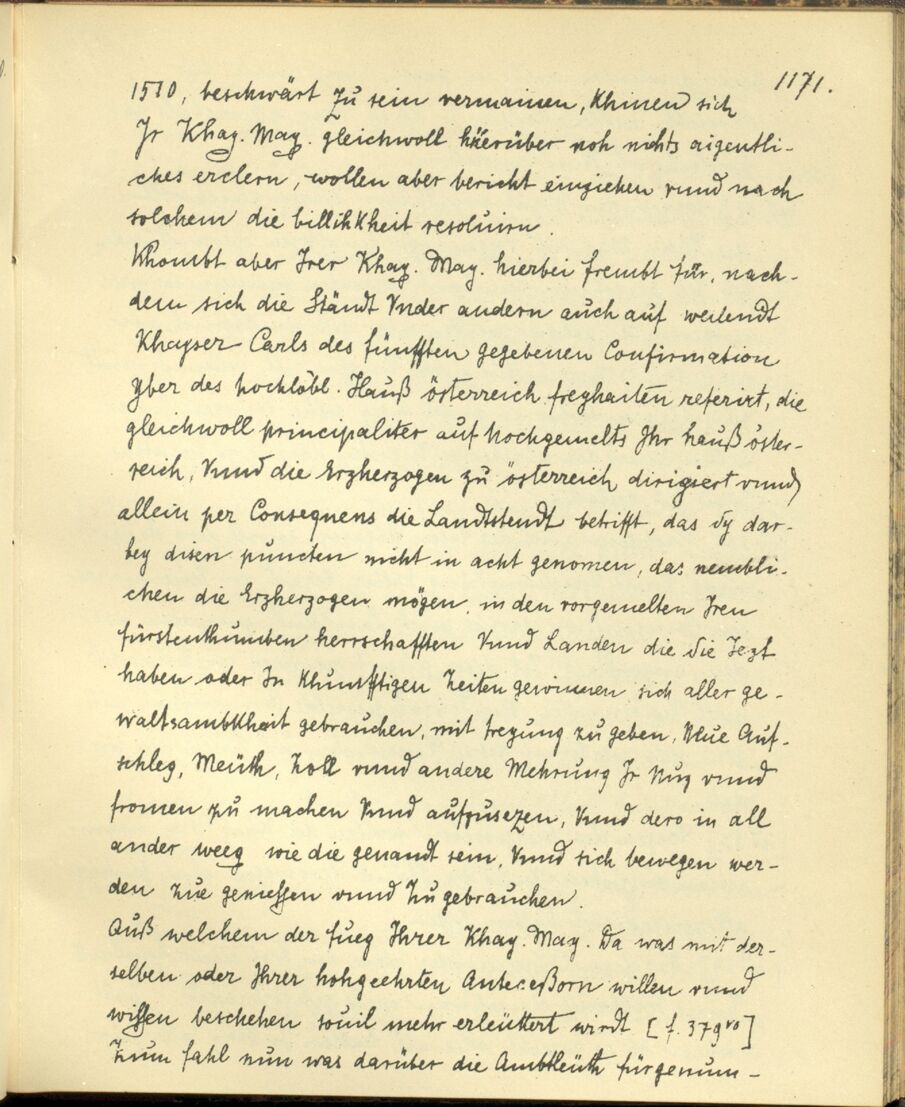 1171.
1510, beschwärt zu sein vermainen, Khinen sich
Jr Khay. May. gleichwoll hierüber noh nichts aigentli-
ches erclern, wollen aber bericht einziehen vnnd nach
solchem die billikKheit resoluirn.
Khombt aber Jrer Khay. May. hierbei frembt für, nach-
dem sich die Ständt Vnder andern auch auf weilendt
Khayser Carls des fünfften gegebenen Confirmation
yber des hochlöbl. Hauß österreich freyhaiten referirt, die
gleichwoll principaliter auf hochgemelts Ihr hauß öster-
reich, Vnnd die Erzherzogen zu österreich dirigiert vnnd
allein per Consequens die Landtstendt betrifft, das sy dar-
bey disen puncten nicht in acht genomen, das nembli-
chen die Erzherzogen mögen in den vorgemelten Iren
fürstenthumben herrschafften Vnnd Landen die sie Jezt
haben oder In Khunfftigen Zeiten gewinnen sich aller ge-
waltsambkhait gebrauchen, mit freyung zu geben, Neue Auf-
schleg, Meüth, Zoll vnnd andere Mehrung Jr Nuz vnnd
fromen zu machen Vnnd aufzusezen, Vnnd dero in all
ander weeg wie die genandt sein, Vnnd sich bewegen wer-
den zue geniessen vnnd Zu gebrauchen.
Auß welchem der fueg Ihrer Khay. May. Da was mit der-
selben oder Ihrer hohgeehrten Anteceßorn willen vnnd
wissen beschehen souil mehr erleüttert wirdt [f. 379vo]
Zum fahl nun was darüber die Ambtleüth fürgenum-